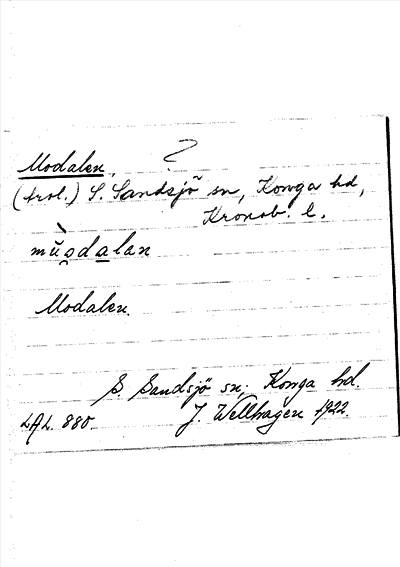 Modalen, ?
(trol.) S. Sandsjö sn, Konga hd,
Kronob. l.
mùo̯dalan
Modalen.
S. Sandsjö sn, Konga hd.
LAL. 880. J. Wellhagen 1922.